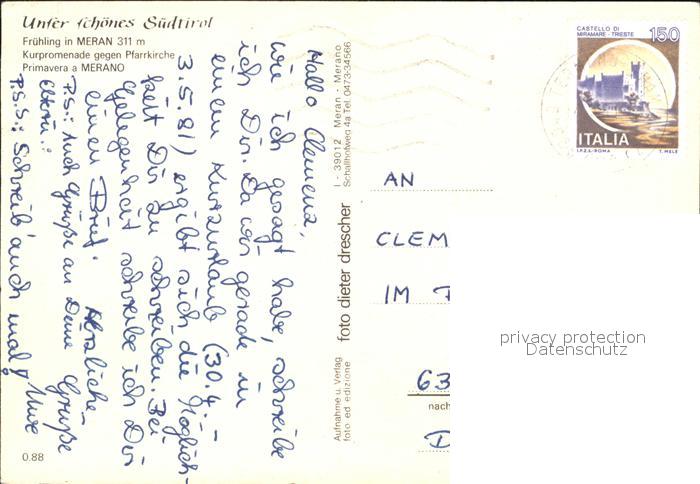 Unser schönes Südtirol
Frühling in MERAN 311 m
Kurpromenade gegen Pfarrkirche
Primavera a MERANO
Hallo Clemens,
wie ich gesagt habe, schreibe
ich Dir. Da wir gerade in
einem Kurzurlaub (30.4. –
3.5.81) ergibt sich die Möglich-
keit Dir zu schreiben. Bei
Gelegenheit schreibe ich Dir
einen Brief.
Herzliche
Grüße
Uwe
P.S.: Auch Grüße an Deine
Eltern!
P.S.S.: Schreib' auch mal!
0.88
I - 39012 Meran - Merano
Schallhofweg 4a Tel. 0473-34566
foto dieter drescher
Aufnahme u. Verlag
foto ed edizione
CASTELLO DI
MIRAMARE - TRIESTE
150
ITALIA
I.P.Z.S. - ROMA
T. MELE
AN
CLEM
IM
63
nach
D
privacy protection
Datenschutz